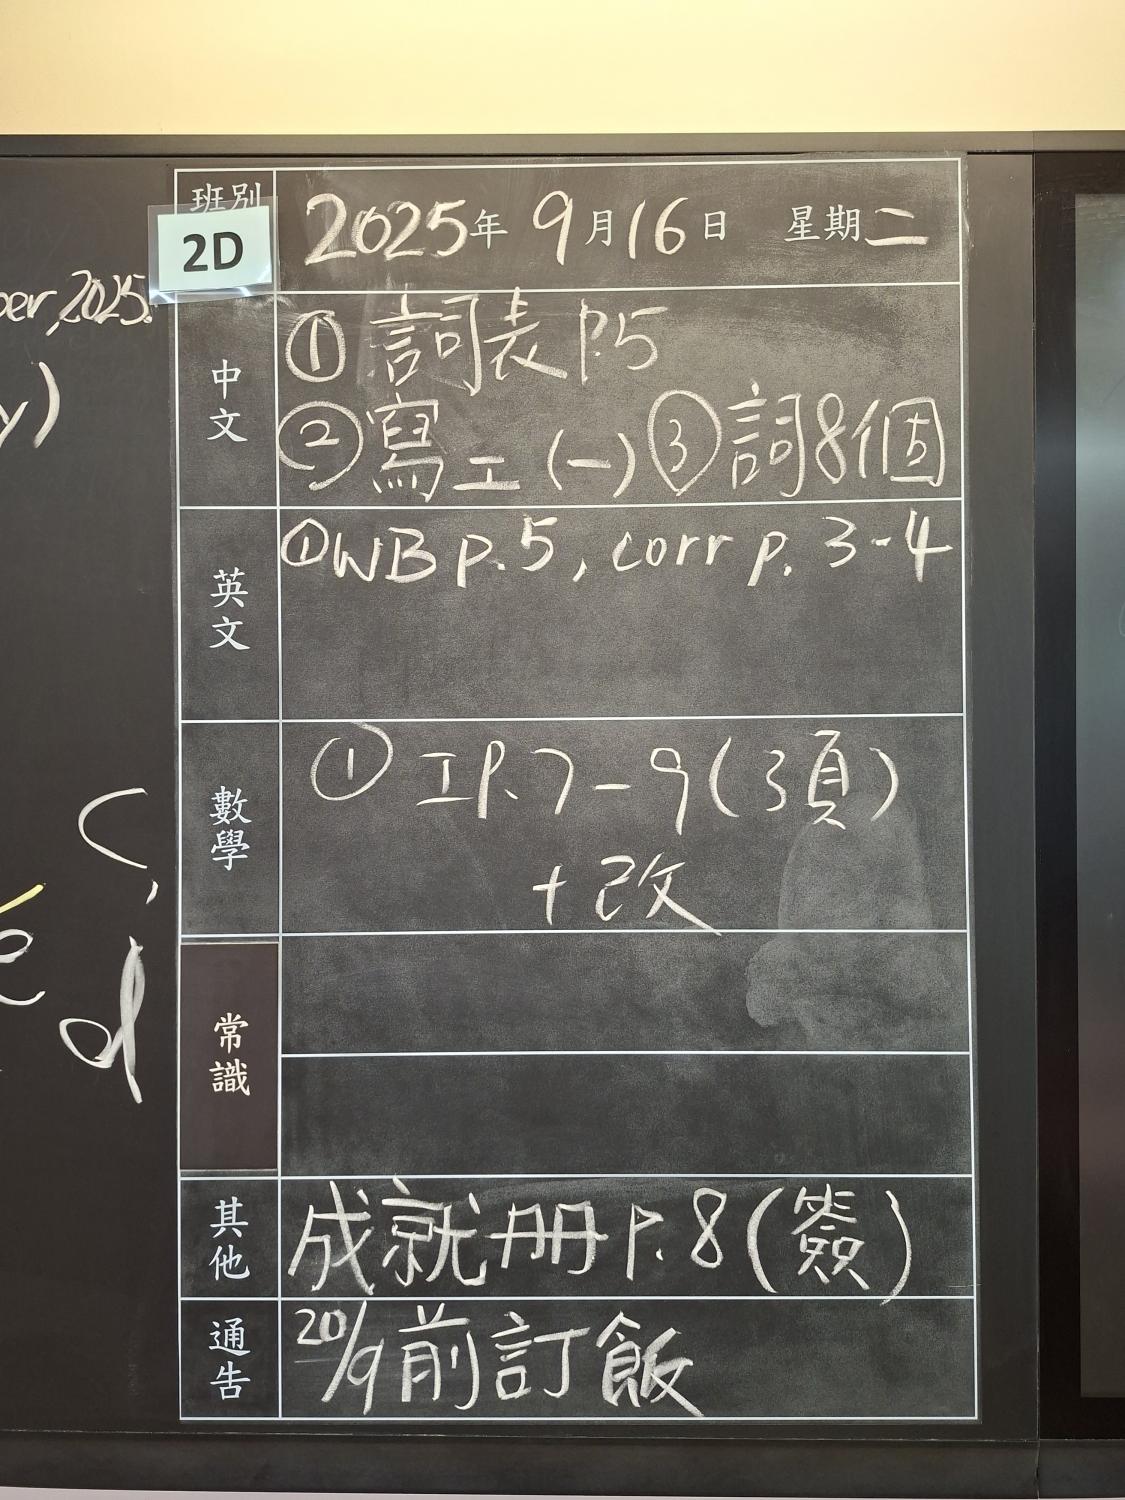 班別
2D
2025年 9月16日 星期二
ber,2025.
y)
中文
① 詞表 P.5
② 寫工 (一) ③ 詞8個
英文
① WB p.5, corr p. 3-4
數學
① 工P.7-9(3頁)
+改
常識
其他
成就冊 P.8(簽)
通告
20/9前訂飯
d